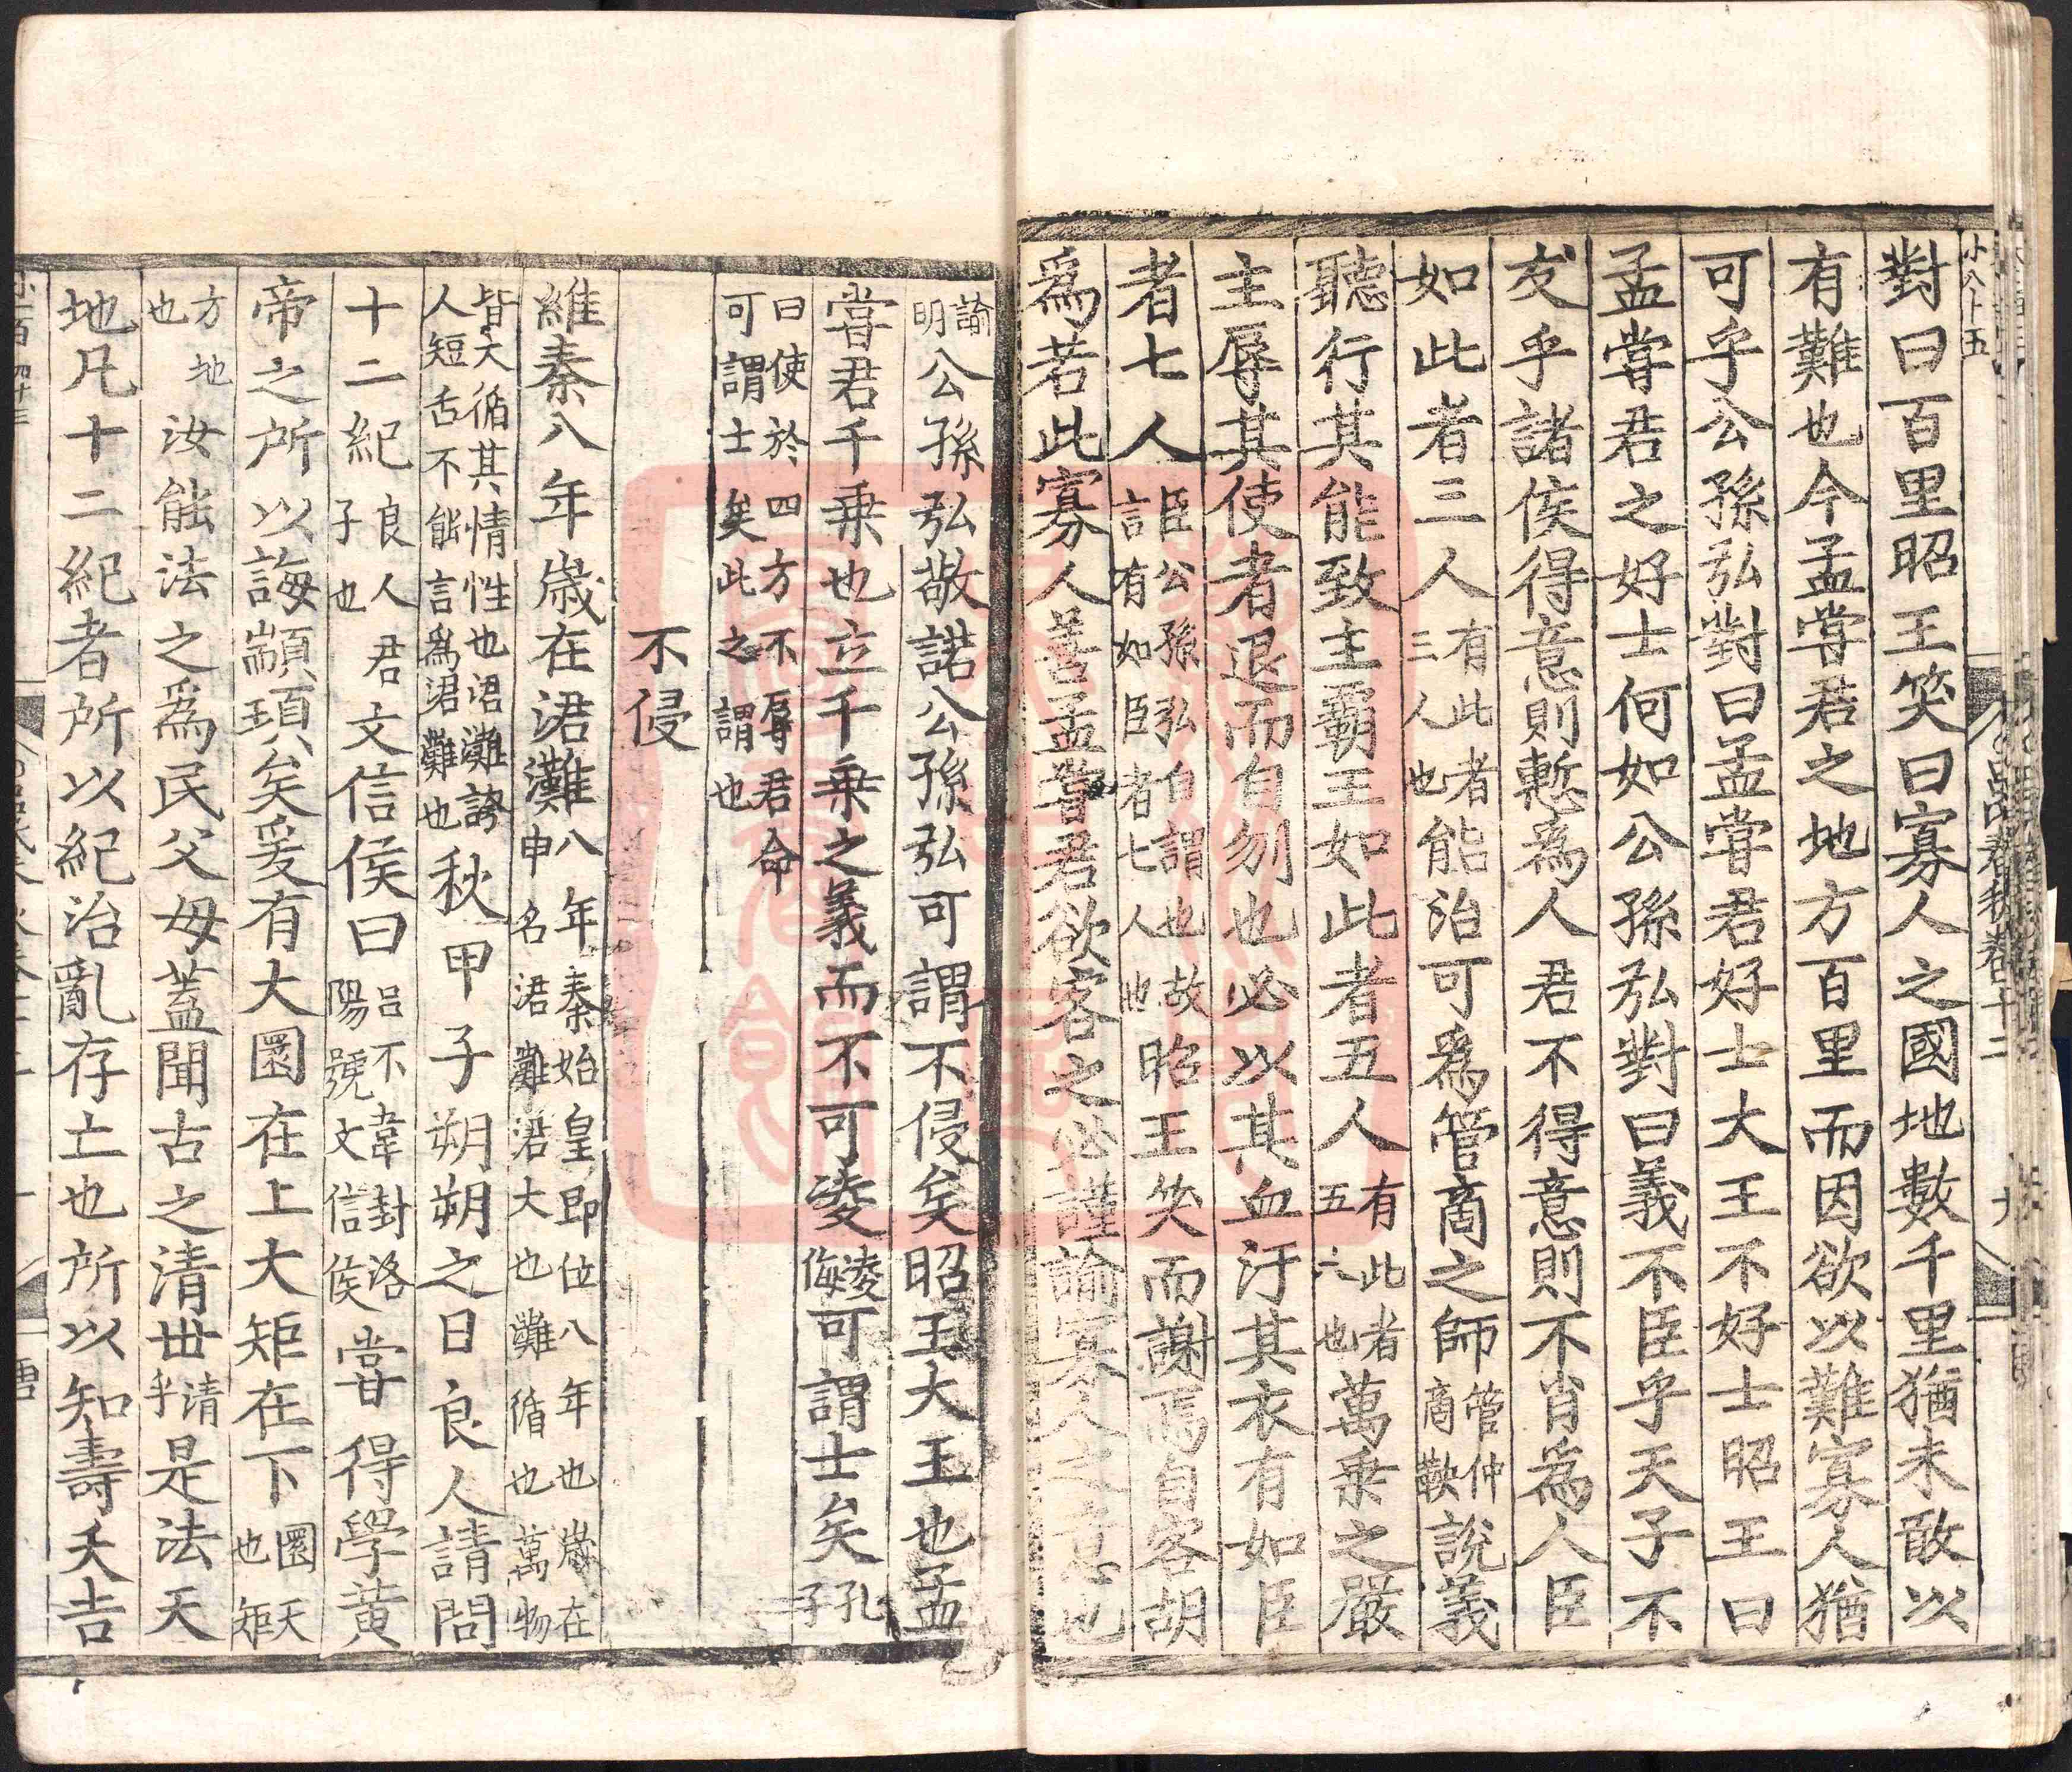 小八十五
對曰百里昭王笑曰寡人之國地數千里猶未敢以
有難也今孟嘗君之地方百里而因欲以難寡人猶
可乎公孫弘對曰孟嘗君好士大王不好士昭王曰
孟嘗君之好士何如公孫弘對曰義不臣乎天子不
友乎諸侯得意則慙爲人君不得意則不肖爲人臣
如此者三人有此者三人也能治可爲管商之師管仲商鞅說義
聽行其能致主霸王如此者五人有此者五六也萬乗之嚴
主辱其使者退而自刎也必以其血汙其衣有如臣
者七人臣公孫弘自謂也故言有如臣者七人也昭王笑而謝焉自客胡
爲若此寡人善孟嘗君欲客之必謹諭寡人之意也
呂氏春秋卷十二
九
諭明公孫弘敬諾公孫弘可謂不侵矣昭王大王也孟
嘗君千乗也立千乗之義而不可凌凌侮可謂士矣孔子
曰使於四方不辱君命可謂士矣此之謂也
不侵
維秦八年歲在涒灘八年秦始皇即位八年也歲在申名涒灘涒大也灘循也萬物
皆大循其情性也涒灘誇人短舌不能言爲涒灘也秋甲子朔朔之日良人請問
十二紀良人君子也文信侯曰呂不韋封洛陽號文信侯嘗得學黄
帝之所以誨顓頊矣爰有大圜在上大矩在下圜天也矩
方地也汝能法之爲民父母蓋聞古之清世清平是法天
地凡十二紀者所以紀治亂存亡也所以知壽夭吉